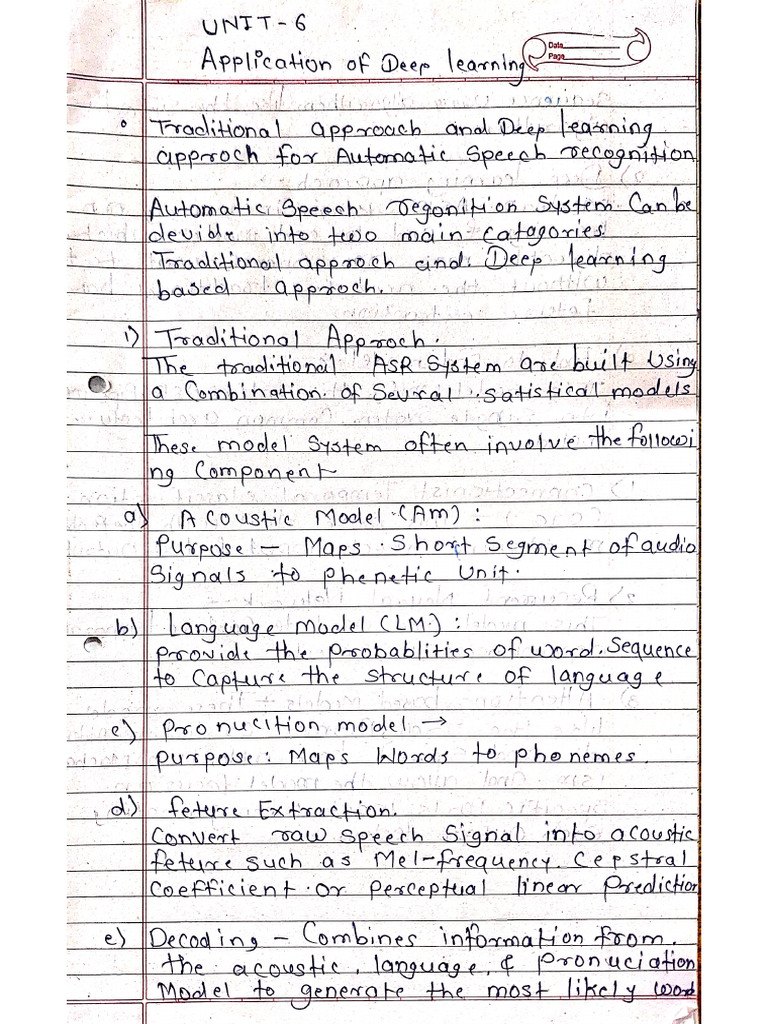 UNIT-6
Application of Deep learning
Date
Page
• Traditional approach and Deep learning
approch for Automatic Speech recognition
Automatic Speech regonition System Can be
devide into two main catagories.
Traditional approch and. Deep learning
based approch.
1) Traditional Approch.
The traditional ASR System are built Using
a Combination of Sevral satistical models
These model System often involve the followi
ng Component
a) Acoustic Model (AM) :
Purpose – Maps Short Segment of audio
Signals to phenetic Unit.
b) Language Model (LM) :
Provide the probablities of word Sequence
to Capture the structure of language
c) Pronucition model →
purpose : Maps Words to phonemes.
d) feture Extraction.
Convert raw Speech Signal into acoustic
feture such as Mel-frequency Cepstral
Coefficient or perceptual linear Prediction
e) Decoding – Combines information from
the acoustic, language, & pronuciation
Model to generate the most likely word